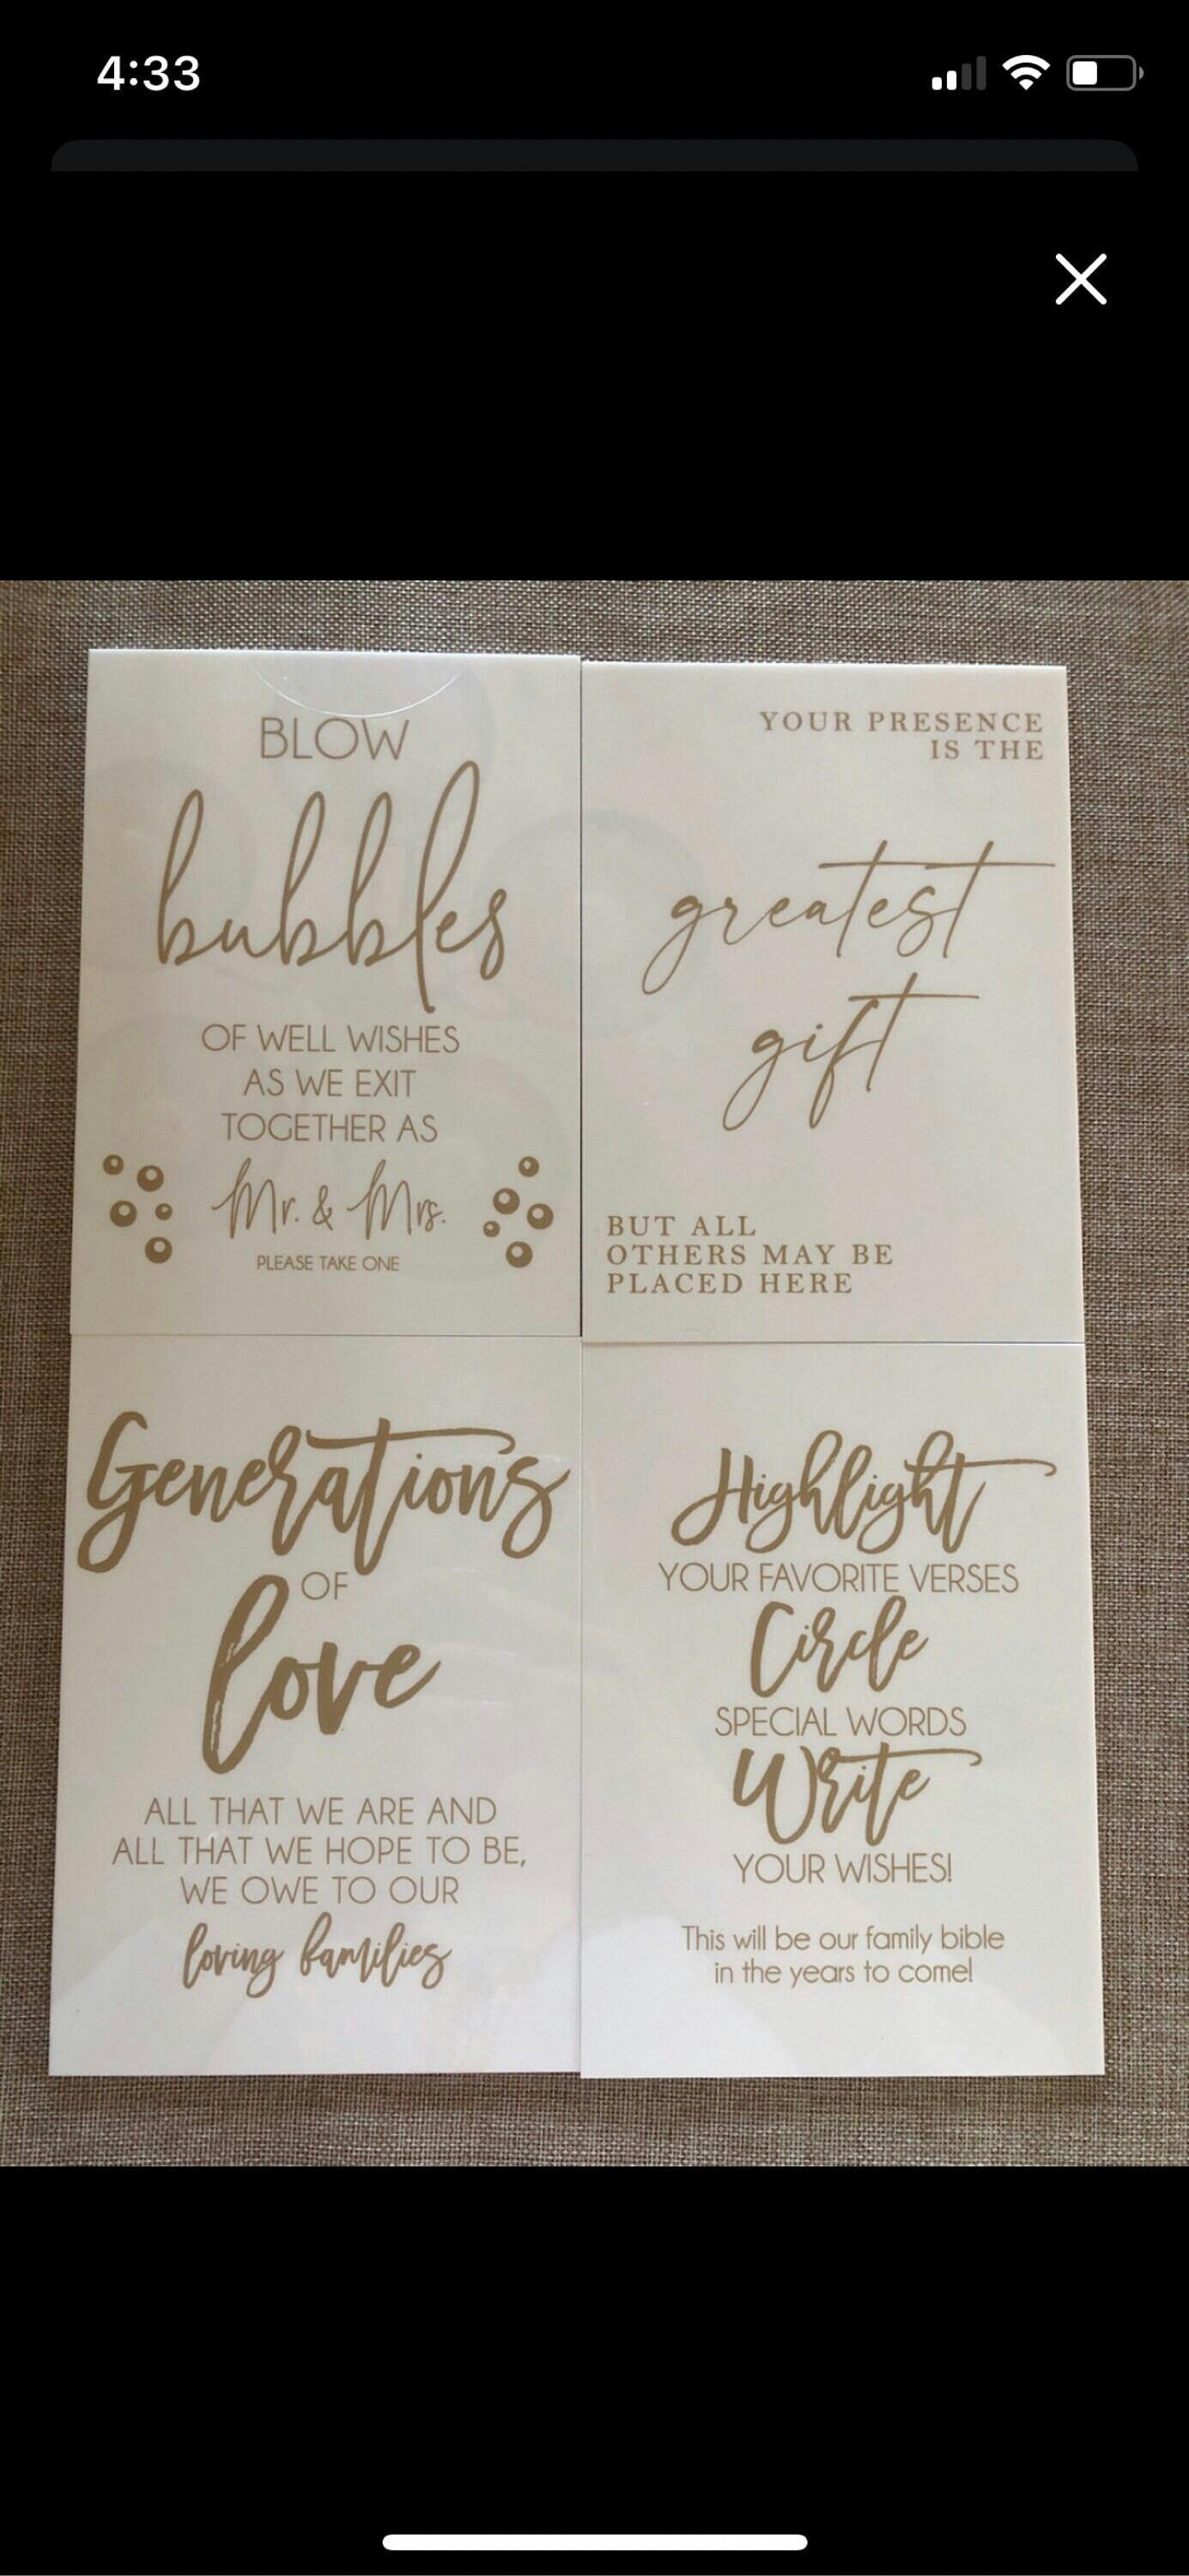 4:33
BLOW
bubbles
OF WELL WISHES
AS WE EXIT
TOGETHER AS
Mr. & Mrs.
PLEASE TAKE ONE
YOUR PRESENCE
IS THE
greatest
gift
BUT ALL
OTHERS MAY BE
PLACED HERE
Generations
OF
love
ALL THAT WE ARE AND
ALL THAT WE HOPE TO BE,
WE OWE TO OUR
loving families
Highlight
YOUR FAVORITE VERSES
Circle
SPECIAL WORDS
Write
YOUR WISHES!
This will be our family bible
in the years to come!